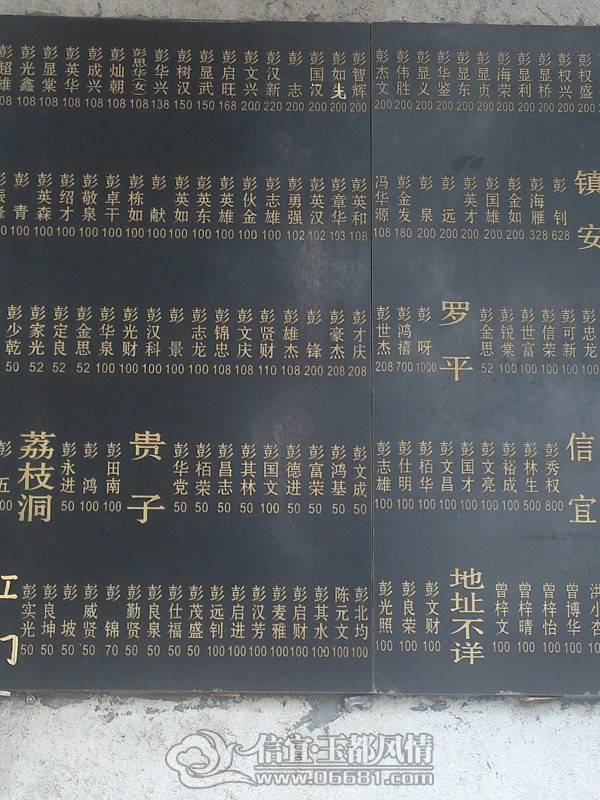 彭权盛 200
彭权兴 200
彭显桥 200
彭显利 200
彭海荣 200
彭显贞 200
彭显东 200
彭华鉴 200
彭显义 200
彭伟胜 200
彭杰文 200
彭智辉 200
彭如先 200
彭国汉 200
彭志 200
彭汉新 220
彭文兴 200
彭启旺 168
彭显武 150
彭树汉 150
彭华兴 138
彭思华(女) 108
彭灿朝 108
彭成兴 108
彭英华 108
彭显棠 108
彭光鑫 108
彭超雄 108
镇安
彭钊 628
彭海雁 328
彭金如 200
彭国雄 200
彭英才 200
彭远 200
彭泉 200
彭金发 180
冯华源 108
彭英和 108
彭章华 103
彭英汉 102
彭勇强 102
彭志雄 100
彭伙金 100
彭英雄 100
彭英东 100
彭英如 100
彭献 100
彭栋如 100
彭卓干 100
彭敬泉 100
彭绍才 100
彭英森 100
彭青 100
彭忠龙 100
彭可新 100
彭信荣 100
彭世富 100
彭锐棠 100
彭金思 52
罗平
彭呀 1000
彭鸿禧 700
彭世杰 208
彭才庆 208
彭豪杰 208
彭锋 200
彭雄杰 108
彭贤财 110
彭文庆 108
彭锦忠 108
彭志龙 100
彭景 100
彭汉科 100
彭光财 100
彭华泉 100
彭金思 52
彭定良 52
彭家光 52
彭少乾 50
信宜
彭秀权 800
彭林生 500
彭裕成 100
彭文亮 100
彭国才 100
彭文昌 100
彭柏华 100
彭仕明 100
彭志雄 100
彭文成 50
彭鸿基 50
彭富荣 50
彭德进 50
彭国文 100
彭其林 50
彭昌志 50
彭栢荣 50
彭华党 50
贵子
彭田南 100
彭鸿 100
彭永进 50
荔枝洞
彭五
洪小杏 100
曾博华 100
曾梓怡 100
曾梓晴 100
曾梓文 100
地址不详
彭文财 100
彭良荣 100
彭光照 100
彭北均 100
陈元文 100
彭其水 100
彭启财 100
彭麦雅 100
彭汉芳 100
彭启进 100
彭远钊 100
彭茂盛 50
彭仕福 50
彭良泉 50
彭勤贤 50
彭锦 70
彭威贤 50
彭坡 50
彭良坤 50
彭实光 50
江门
信宜·玉都风情
www.06681.com